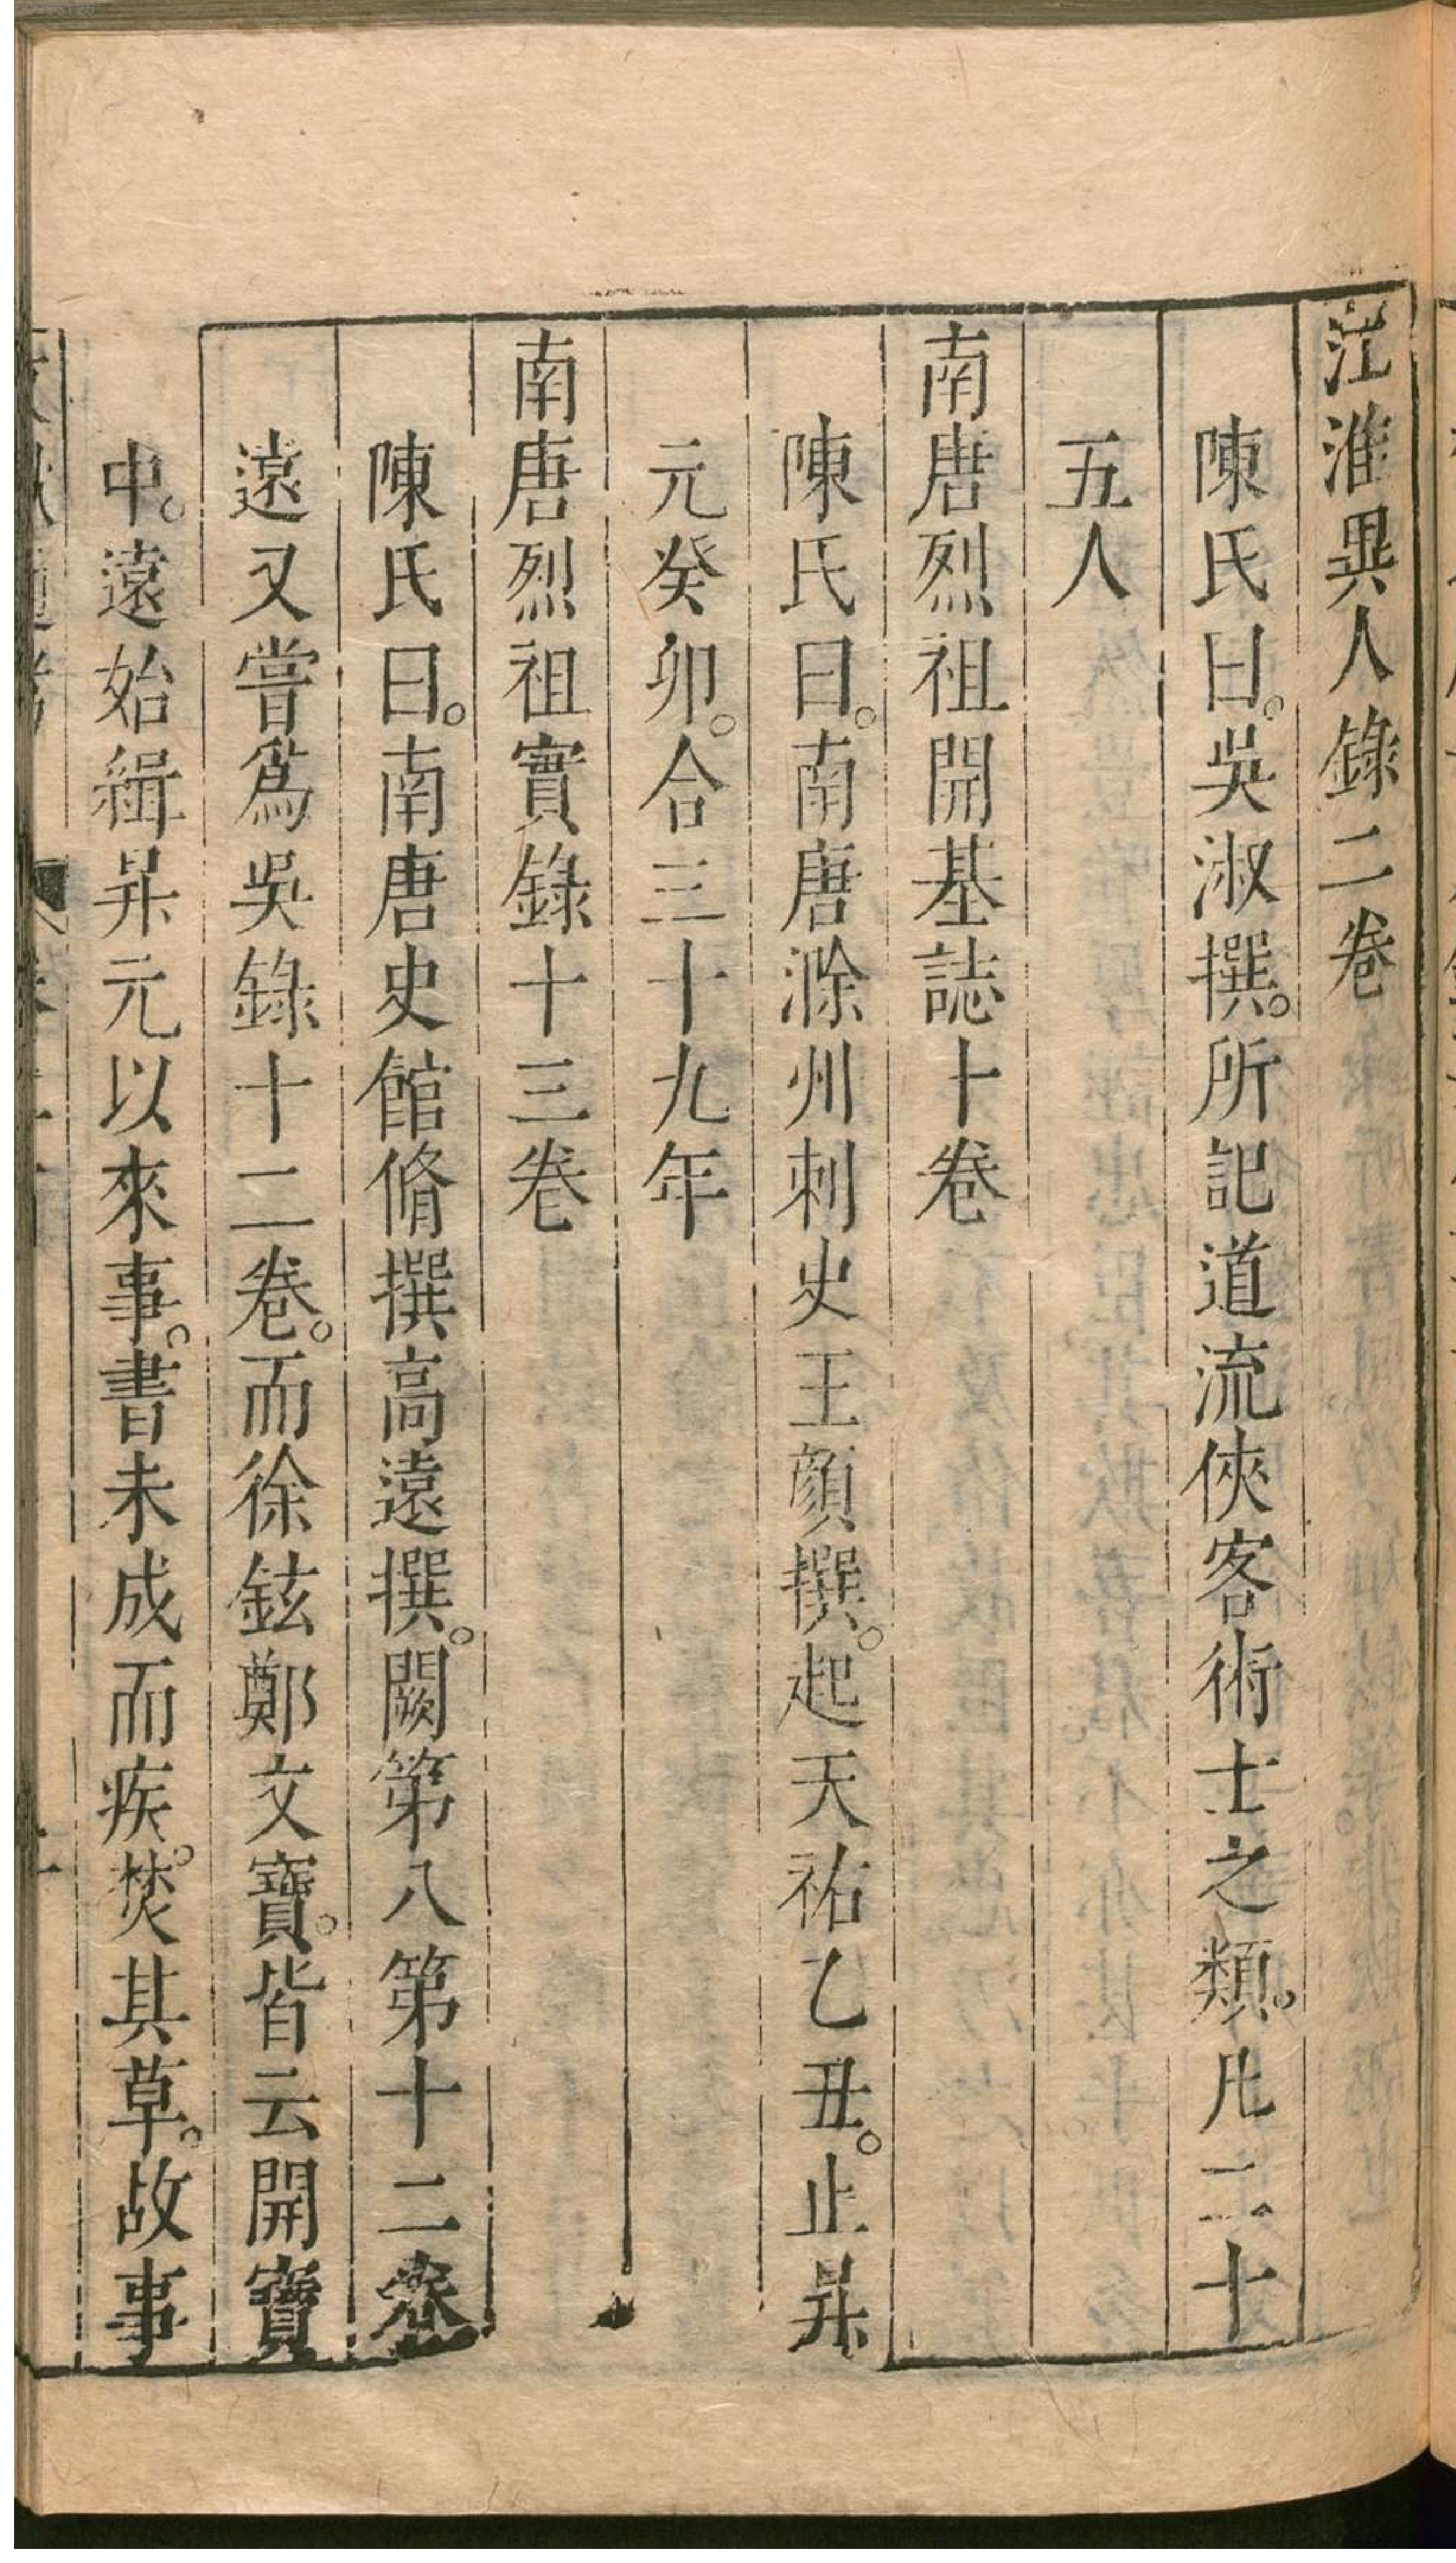 江淮異人錄二卷
陳氏曰。吳淑撰。所記道流俠客術士之類。凡二十
五人
南唐烈祖開基誌十卷
陳氏曰。南唐滁州刺史王顔撰。起天祐乙丑。止昇
元癸卯。合三十九年
南唐烈祖實錄十三卷
陳氏曰。南唐史館脩撰高遠撰。闕第八第十二卷
遠又嘗爲吳錄十二卷。而徐鉉鄭文寶。皆云開寶
中。遠始緝昇元以來事。書未成而疾。焚其草。故事